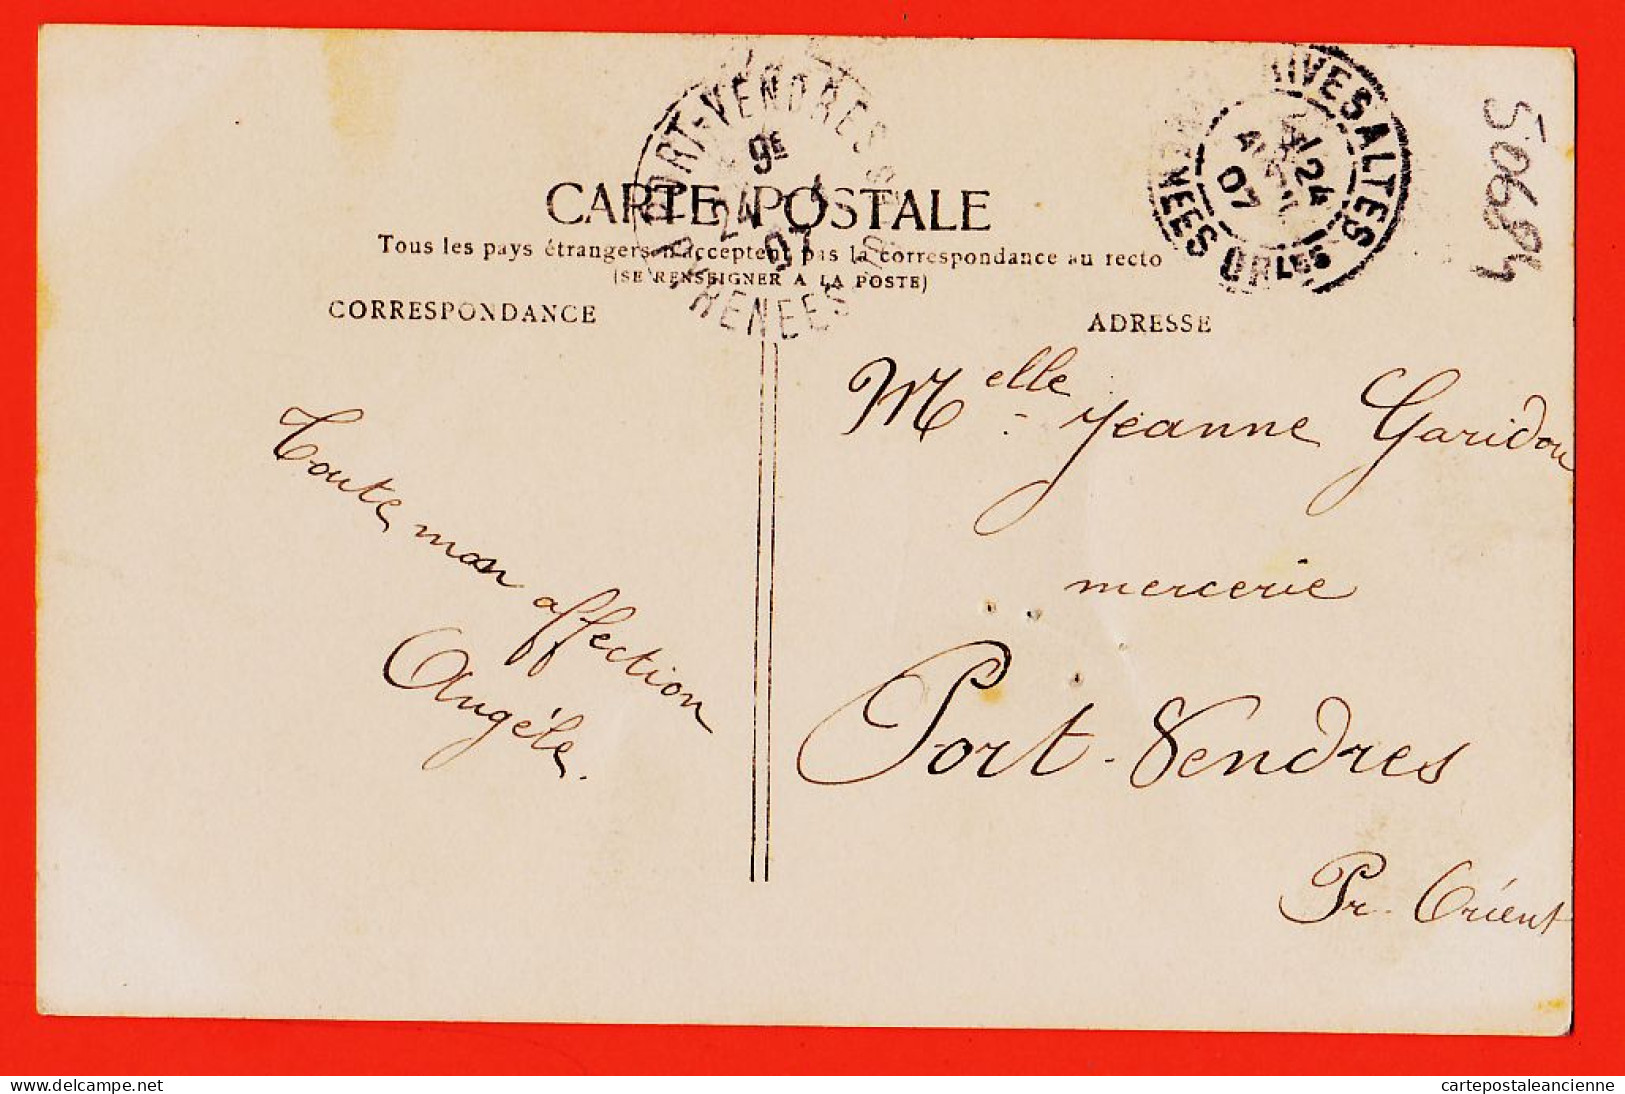 RIVESALTES
PYRENEES ORLES
24
07
PORT-VENDRES
9E
24
07
PYRENEES
50694
CARTE POSTALE
Tous les pays étrangers n'acceptent pas la correspondance au recto
(SE RENSEIGNER A LA POSTE)
CORRESPONDANCE
ADRESSE
Toute mon affection
Angèle.
Melle Jeanne Garidou
mercerie
Port-Vendres
Pr. Orient
cartepostaleancienne